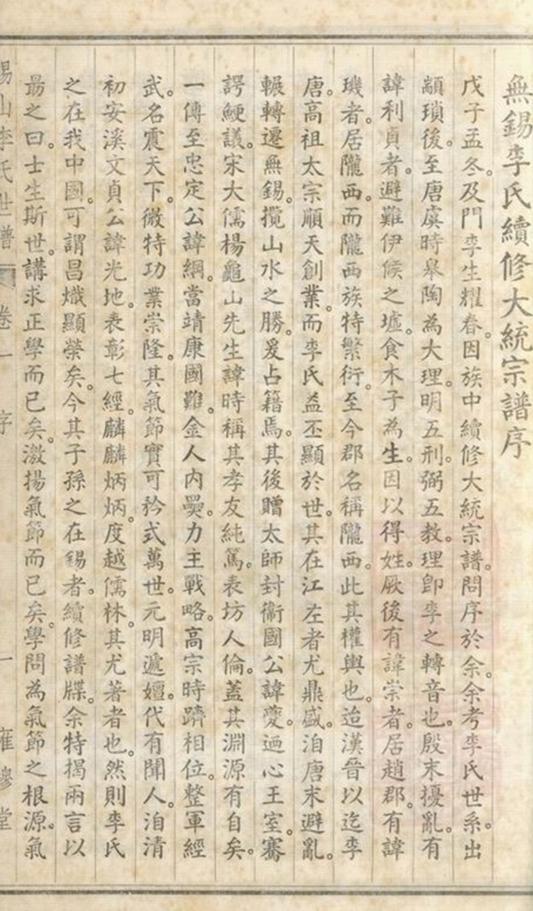 無錫李氏續修大統宗譜序
戊子孟冬。及門李生耀春。因族中續修大統宗譜。問序於余。余考李氏世系。出
顓頊後。至唐虞時皋陶為大理。明五刑。弼五教。理卽李之轉音也。殷末擾亂。有
諱利貞者。避難伊候之墟。食木子為生。因以得姓。厥後有諱崇者。居趙郡。有諱
璣者。居隴西。而隴西族特繁衍。至今郡名稱隴西。此其權輿也。迨漢晉以迄李
唐。高祖太宗順天創業。而李氏益丕顯於世。其在江左者尤鼎盛。洎唐末避亂。
輾轉遷無錫。攬山水之勝。爰占籍焉。其後贈太師封衞國公諱夔。迺心王室。審
諤鯁議。宋大儒楊龜山先生諱時稱其孝友純篤。表坊人倫。蓋其淵源有自矣。
一傳至忠定公諱綱。當靖康國難。金人內㢲。力主戰略。高宗時躋相位。整軍經
武。名震天下。微特功業崇隆。其氣節實可矜式萬世。元明遞嬗。代有聞人。洎清
初安溪文貞公諱光地。表彰七經。麟麟炳炳。度越儒林。其尤著者也。然則李氏
之在我中國。可謂昌熾顯榮矣。今其子孫之在錫者。續修譜牒。余特揭兩言以
勗之曰。士生斯世。講求正學而已矣。激揚氣節而已矣。學問為氣節之根源。氣
錫山李氏世譜 卷一 序 一 雍穆堂